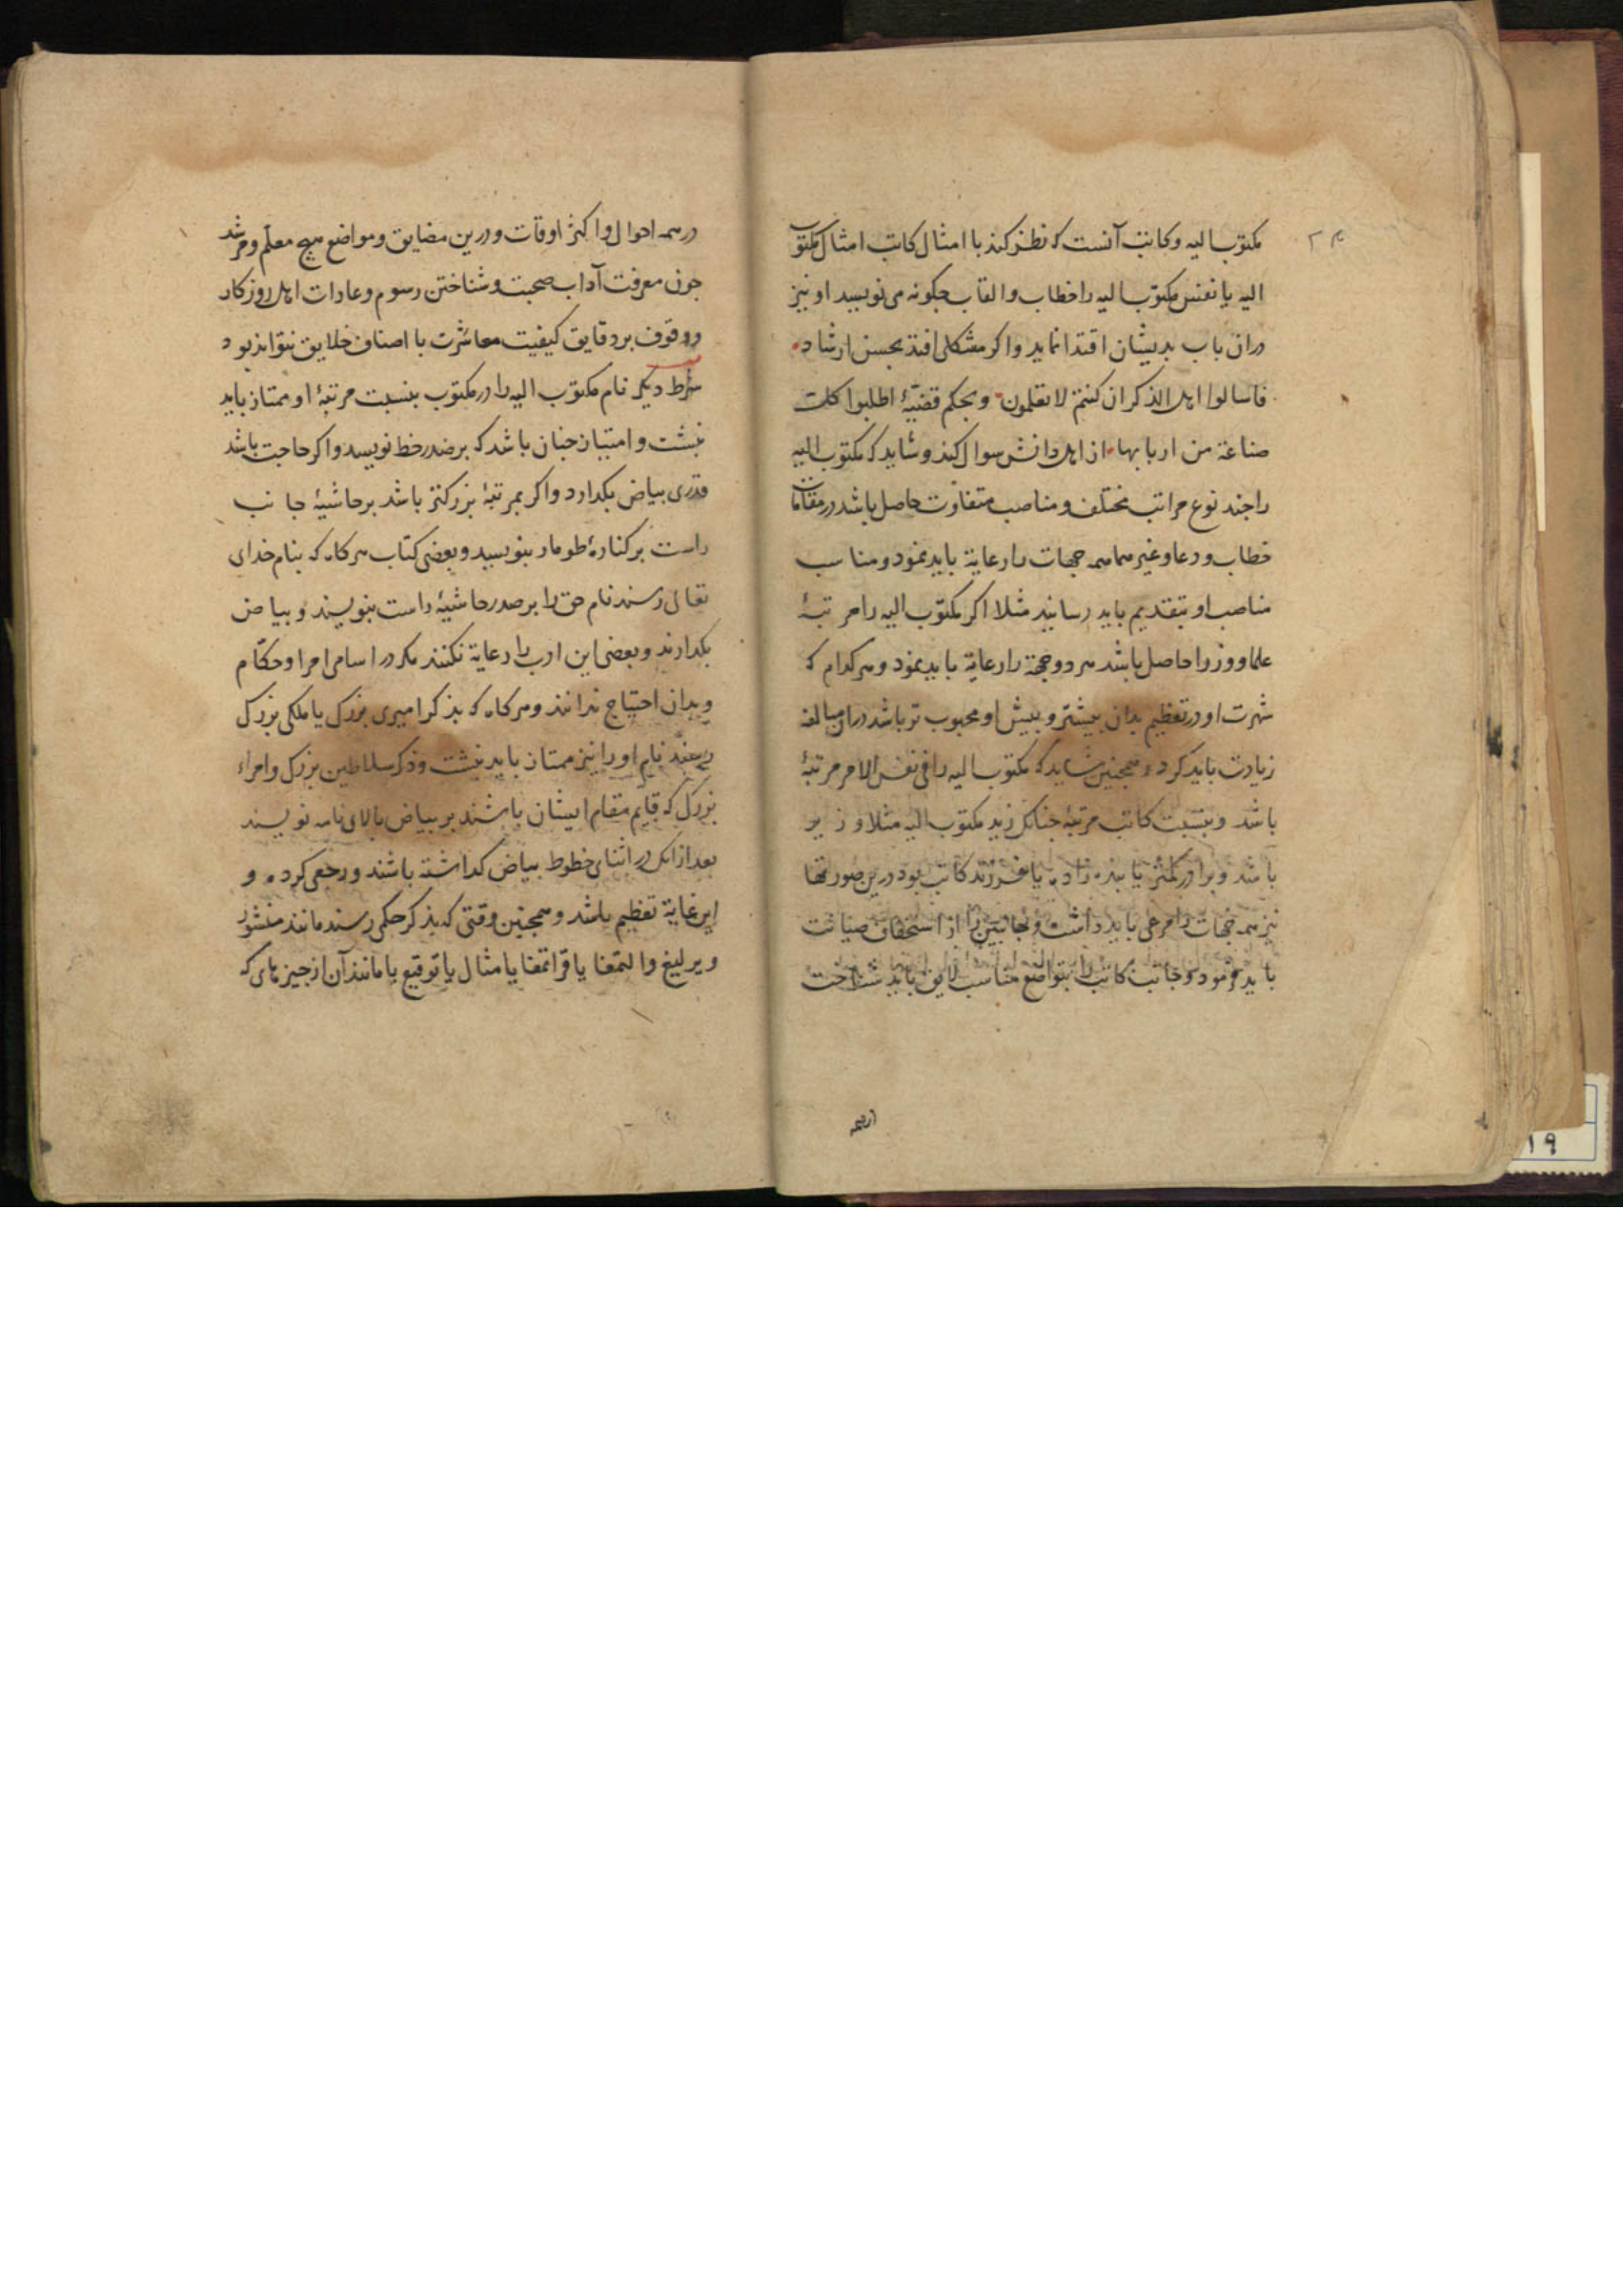 مکتوب الیه وکاتب آنست که نظر کند با امثال کاتب امثال مکتوب
الیه یا نفس مکتوب الیه را خطاب والقاب جکونه می نویسید او نیز
دران باب بدیشان اقتدا نماید واکر مشکلی افتد بحسن ارشاد
فاسالوا اهل الذکر ان کنتم لا تعلمون وبحکم قضیهٔ اطلبوا کلت
صناعة من اربابها از اهل دانش سوال کند وشاید که مکتوب الیه
را جند نوع مراتب مختلف ومناصب متفاوت حاصل باشد در مقامات
خطاب ودعا وغیرهما همه جهات را رعایة باید نمود ومناسب
مناصب او بتقدیم باید رسانید مثلا اکر مکتوب الیه را مرتبهٔ
علما ووزرا حاصل باشد هر دو جهة را رعایة باید نمود وهر کدام که
شهرت او در تعظیم بدان بیشتر وبیش او محبوب تر باشد دران مبالغه
زیادت باید کرد وهمجنین شاید که مکتوب الیه را فی نفس الامر مرتبهٔ
باشد وبنسبت کاتب مرتبهٔ جنانک زید مکتوب الیه مثلا وزیر
باشد وبرادر کمتر یا بنده زاده یا فرزند کاتب بود درین صورتها
نیز همه جهات را مرعی باید داشت وجانبین را از استخفاف صیانت
باید فرمود وجانب کاتب را بتواضع مناسب لایق باید شناخت
در همه احوال واکثر اوقات ودرین مضایق ومواضع هیج معلم ومرشد
جون معرفت آداب صحبت وشناختن رسوم وعادات اهل روزکار
ووقوف بر دقایق کیفیت معاشرت با اصناف خلایق نتواند بود
شرط دیکر نام مکتوب الیه را در مکتوب بنسبت مرتبهٔ او ممتاز باید
نبشت وامتیاز جنان باشد که بر صدر خط نویسد واکر حاجت باشد
قدری بیاض بکدارد واکر بمرتبهٔ بزرکتر باشد بر حاشیهٔ جانب
راست بر کنارهٔ طومار بنویسید وبعضی کتاب هر کاه که بنام خدای
تعالی رسند نام حق را بر صدر حاشیهٔ راست بنویسند وبیاض
بکدارند وبعضی این ادب را رعایة نکنند مکر در اسامی امرا وحکام
وبدان احتیاج ندانند وهر کاه که بذکر امیری بزرک یا ملکی بزرک
رسند نام او را نیز ممتاز باید نبشت وذکر سلاطین بزرک وامراء
بزرک که قایم مقام ایشان باشند بر بیاض بالای نامه نویسند
بعد ازانک در اثنای خطوط بیاض کداشته باشند ورجعی کرده و
این غایة تعظیم باشد وهمجنین وقتی که بذکر حکمی رسند مانند منشور
ویرلیغ والتمغا یا قراتمغا یا مثال یا توقیع یا مانند آن از جیزهای که